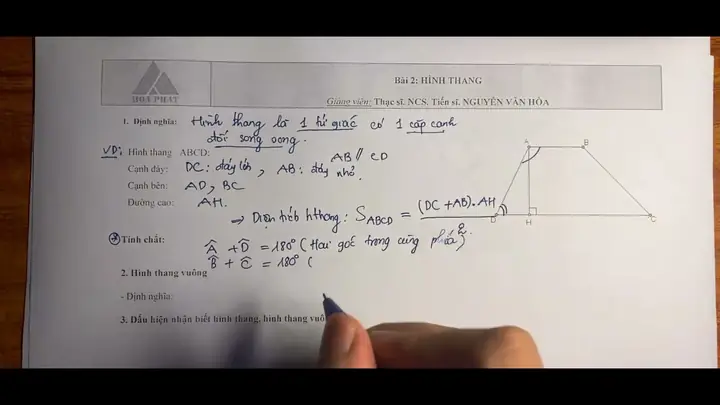 HOA PHAT
Bài 2: HÌNH THANG
Giảng viên: Thạc sĩ. NCS. Tiến sĩ. NGUYỄN VĂN HÒA
1. Định nghĩa: Hình thang là 1 tứ giác có 1 cặp cạnh
đối song song.
VD: Hình thang ABCD: AB // CD
Cạnh đáy: DC: đáy lớn, AB: đáy nhỏ.
Cạnh bên: AD, BC
Đường cao: AH.
→ Diện tích hthang: S_ABCD = (DC + AB). AH / 2
A
B
D
H
C
* Tính chất:
Â + D̂ = 180° (Hai góc trong cùng phía)
B̂ + Ĉ = 180° (
2. Hình thang vuông
- Định nghĩa:
3. Dấu hiện nhận biết hình thang, hình thang vuô